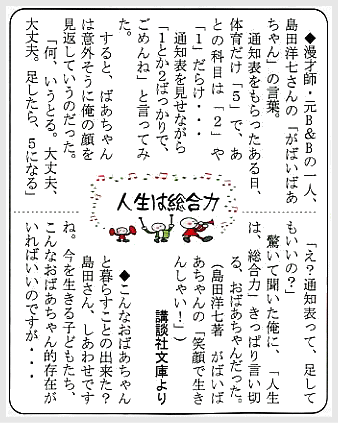 ◆漫才師・元B&Bの一人、
島田洋七さんの「がばいばあ
ちゃん」の言葉。
通知表をもらったある日、
体育だけ「5」で、あ
との科目は「2」や
「1」だらけ・・・
通知表を見せながら
「1とか2ばっかりで、
ごめんね」と言ってみ
た。
すると、ばあちゃん
は意外そうに俺の顔を
見返していうのだった。
「何、いうとる。大丈夫、
大丈夫。足したら、5になる」
人生は総合力
「え?通知表って、足して
もいいの?」
驚いて聞いた俺に、「人生
は、総合力」きっぱり言い切
る、おばあちゃんだった。
(島田洋七著 がばいば
あちゃんの「笑顔で生き
んしゃい!」)
講談社文庫より
◆こんなおばあちゃん
と暮らすことの出来た?
島田さん、しあわせです
ね。今を生きる子どもたち、
こんなおばあちゃん的存在が
いればいいのですが・・・